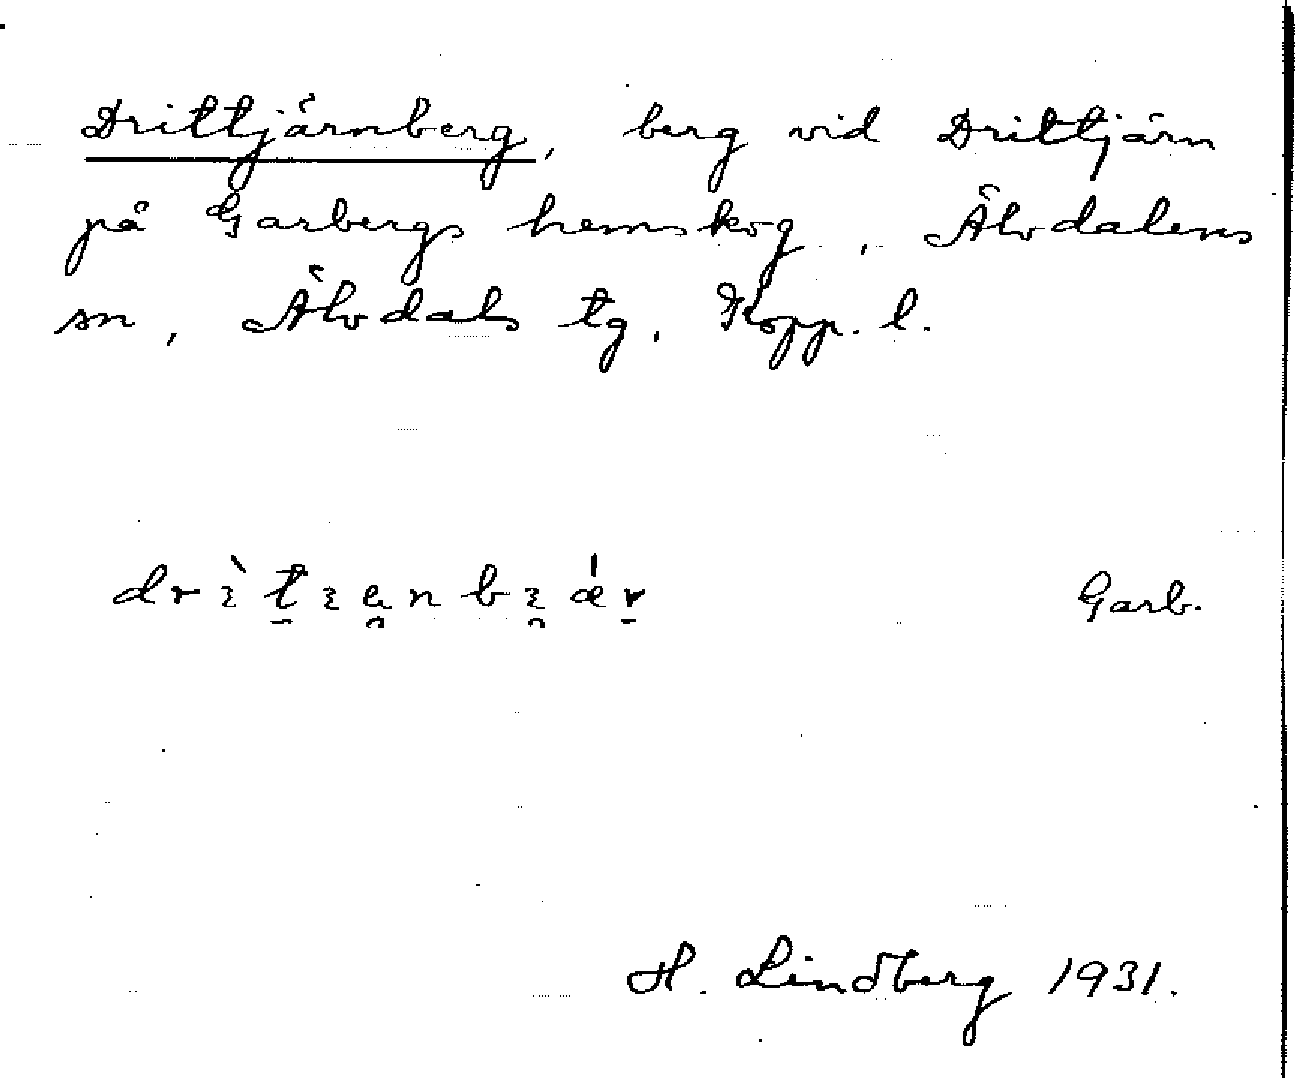 Drittjärnberg, berg vid Drittjärn
på Garbergs hemskog, Älvdalens
sn, Älvdals tg, Kopp. l.
Garb.
H. Lindberg 1931.